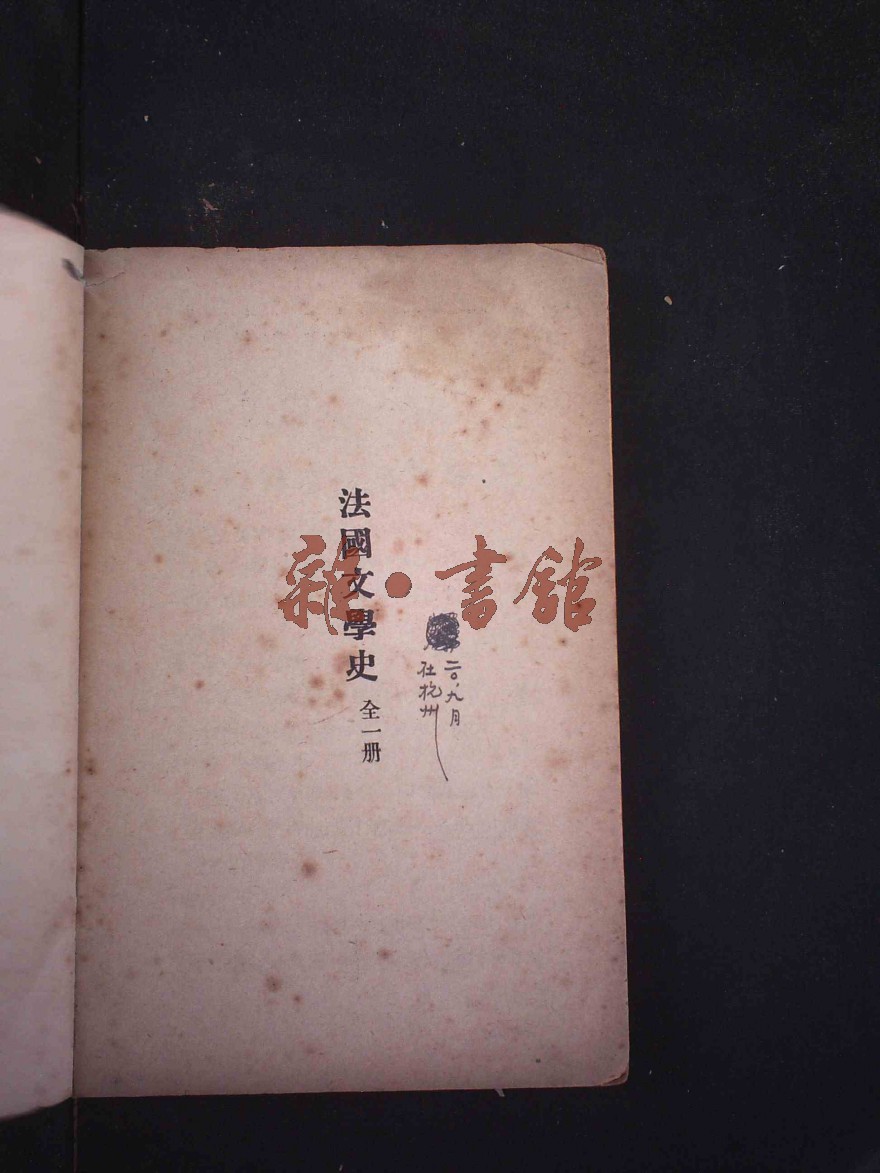 法國文學史 全一册
二〇、九月
杭州
雜·書館